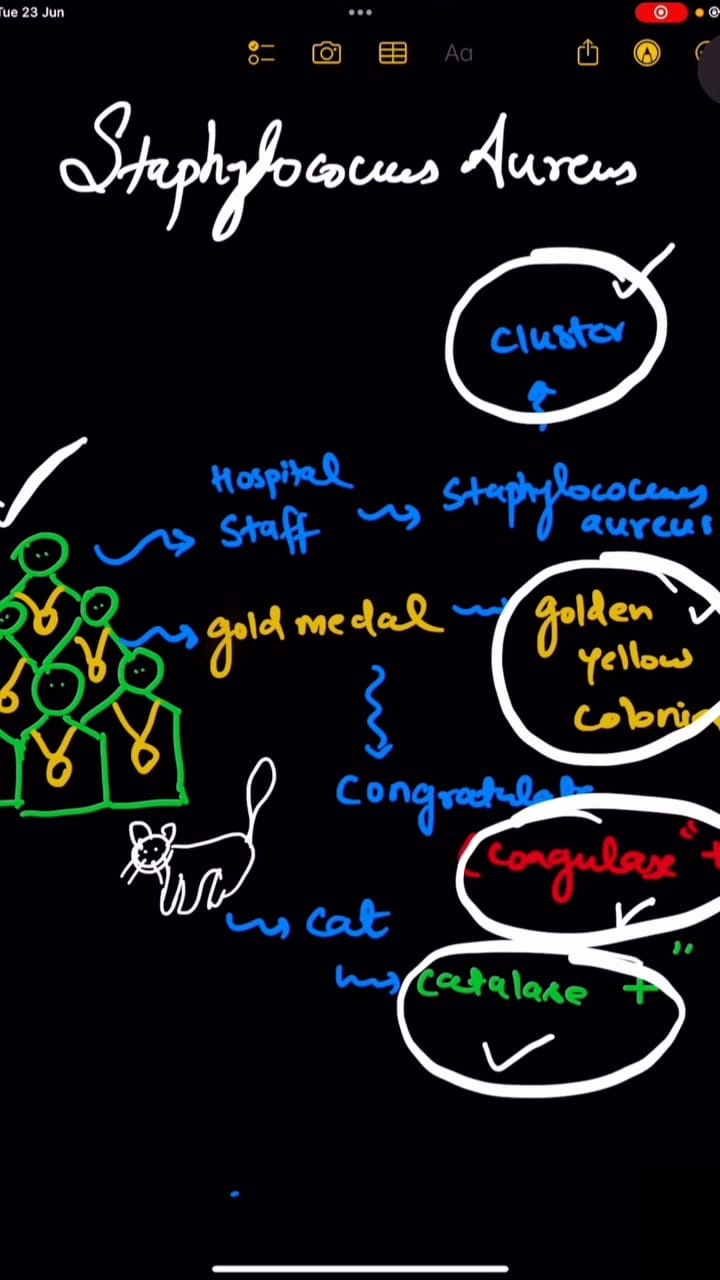 Tue 23 Jun
Aa
Staphylococcus Aureus
Cluster
Hospital
Staff
Staphylococcus
aureus
gold medal
golden
yellow
Congratulate
"coagulase" +
cat
catalase +"